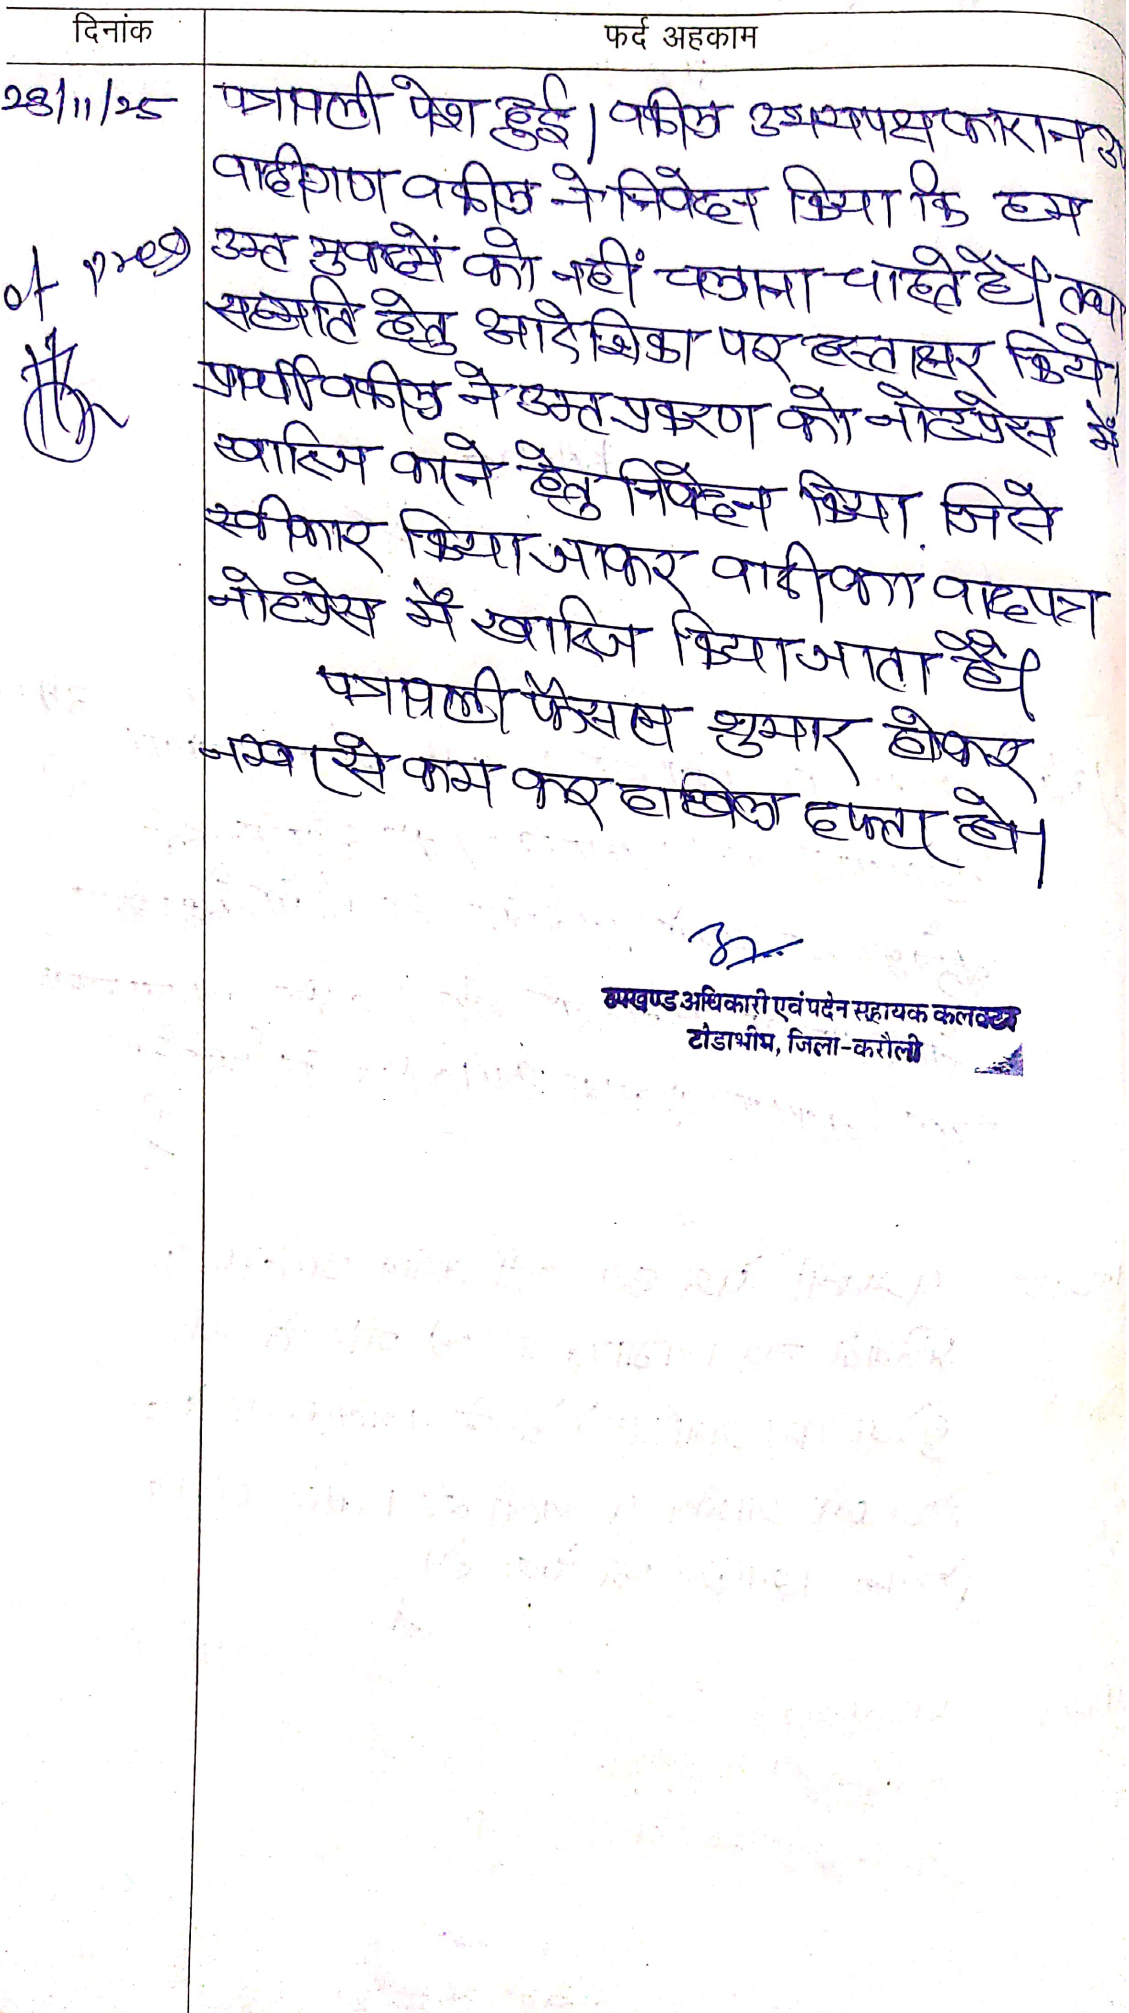 दिनांक
फर्द अहकाम
28/11/25 पत्रावली पेश हुई। वकील उभयपक्षकारान उ
वादीगण वकील ने निवेदन किया कि हम
उक्त मुकदमें को नहीं चलाना चाहते हैं। तथा
सहमति हेतु आदेशिका पर हस्ताक्षर किये।
प्रार्थी वकील ने उक्त प्रकरण को नोटप्रेस में
खारिज करने हेतु निवेदन किया जिसे
स्वीकार किया जाकर वादी का वादपत्र
नोटप्रेस में खारिज किया जाता है।
पत्रावली फैसल शुमार होकर
नम्बर से कम कर दाखिल दफ्तर हो।
उपखण्ड अधिकारी एवं पदेन सहायक कलक्टर
टोडाभीम, जिला-करौली